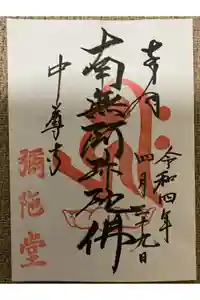 奉拝
令和四年
四月二十九日
南無阿弥陀佛
中尊寺
彌陀堂